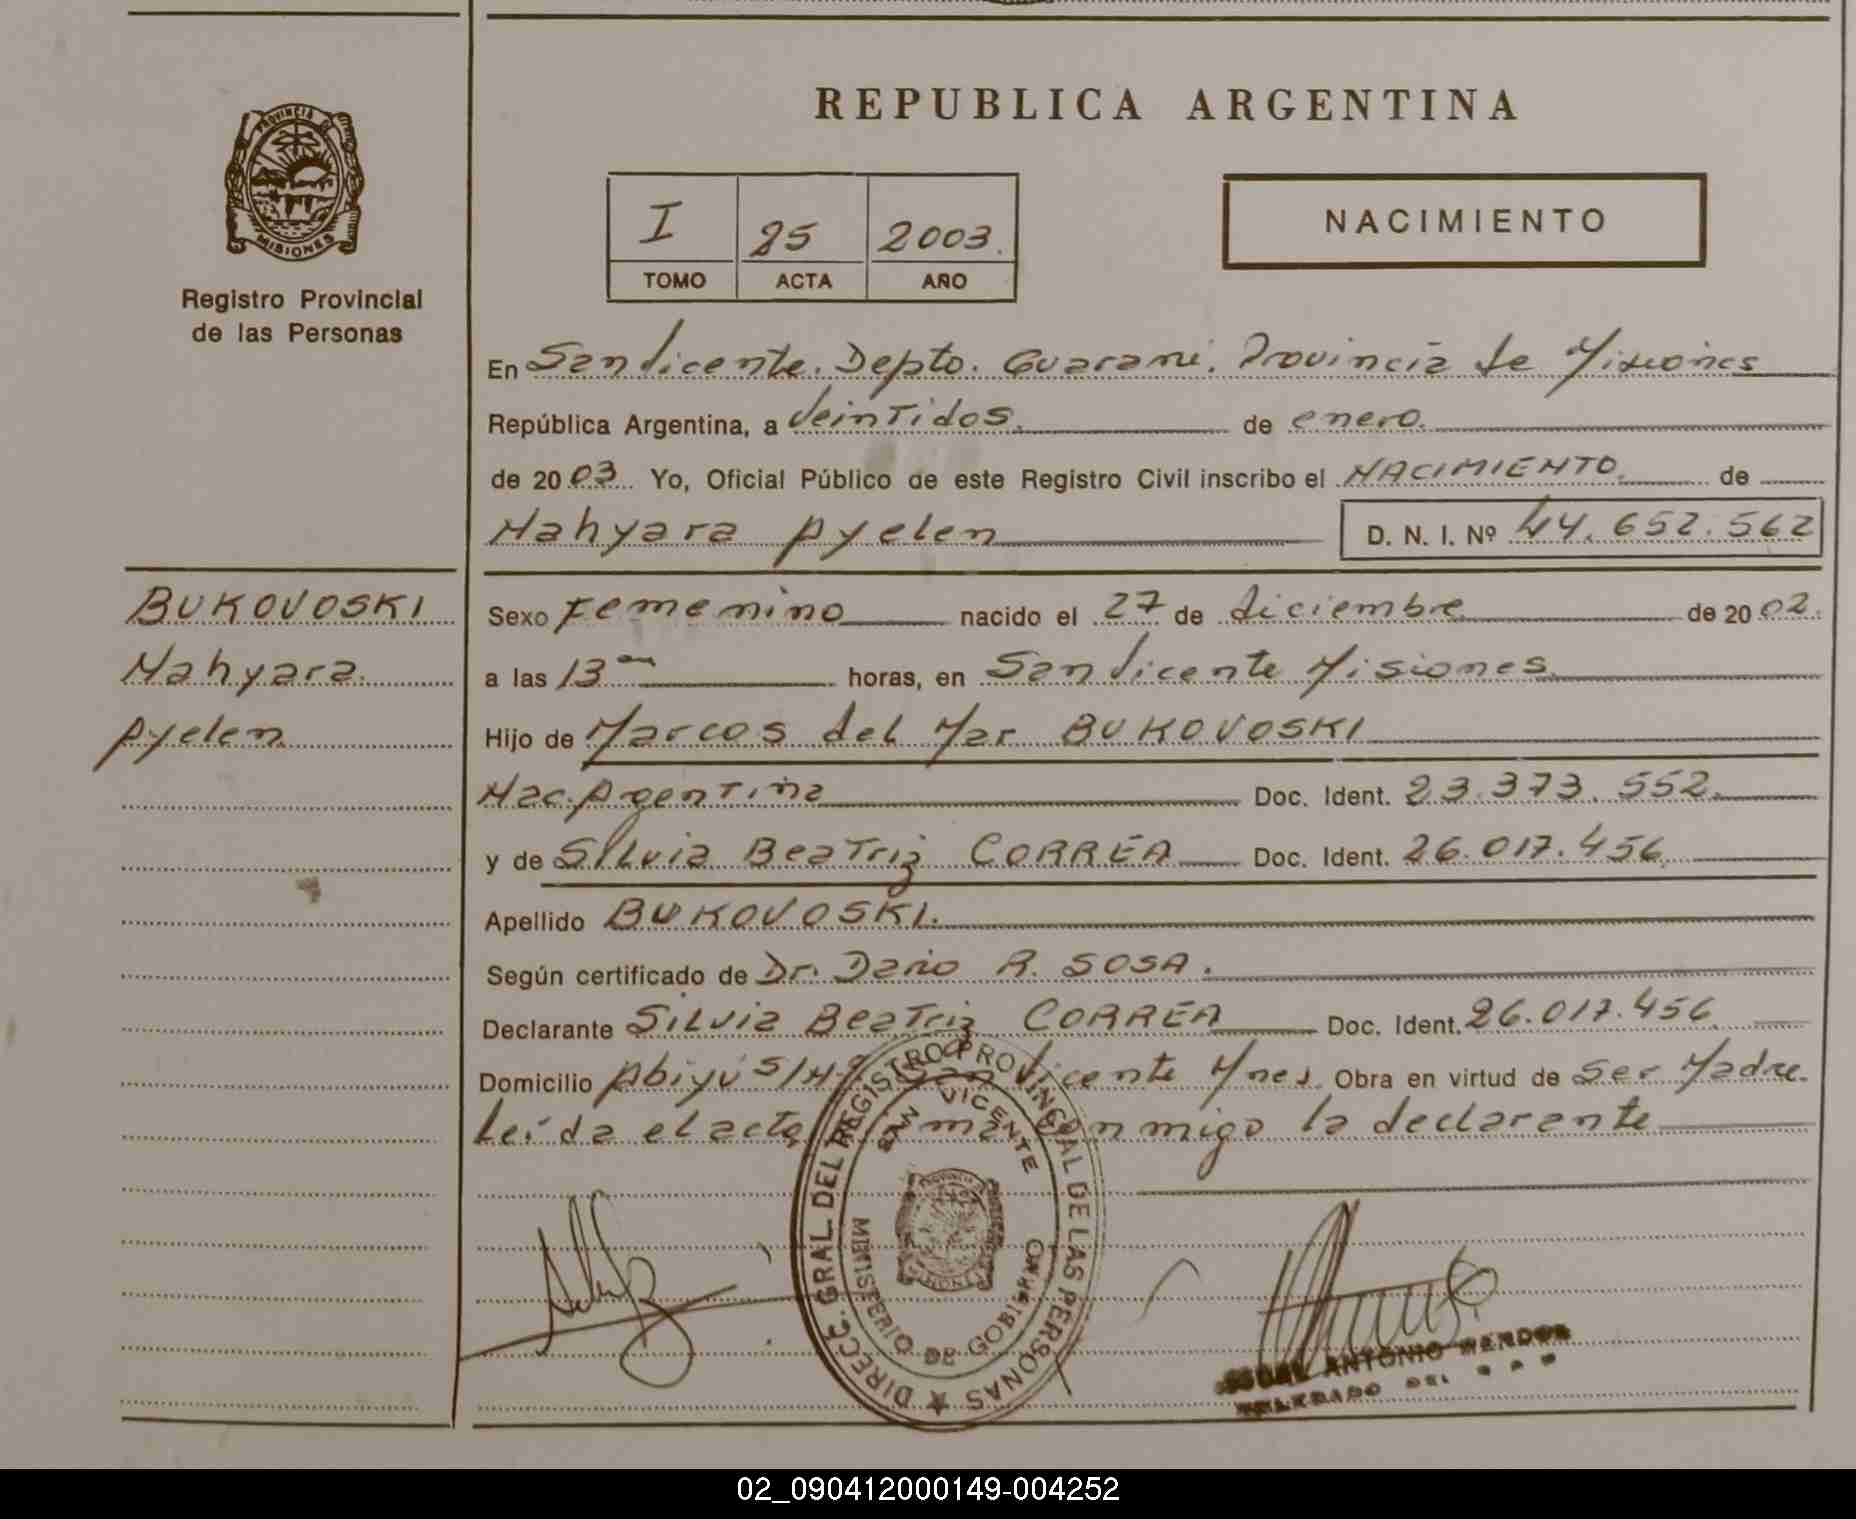 REPUBLICA ARGENTINA
PROVINCIA DE
MISIONES
Registro Provincial
de las Personas
I 25 2003.
TOMO ACTA AÑO
NACIMIENTO
En San Vicente. Depto. Guarani. Provincia de Misiones
República Argentina, a veintidos. de enero.
de 2003. Yo, Oficial Público de este Registro Civil inscribo el NACIMIENTO. de
Nahyara Ayelen D. N. I. Nº 44.652.562
BUKOVOSKI
Nahyara.
Ayelen
Sexo Femenino nacido el 27 de diciembre de 2002.
a las 13 horas, en San Vicente Misiones.
Hijo de Marcos del Mar BUKOVOSKI
Nac. Argentina Doc. Ident. 23.373.552.
y de Silvia Beatriz CORREA Doc. Ident. 26.017.456.
Apellido BUKOVOSKI.
Según certificado de Dr. Dario R. SOSA.
Declarante Silvia Beatriz CORREA Doc. Ident. 26.017.456
Domicilio Abiyú S/Nº San Vicente Mnes. Obra en virtud de Ser Madre.
Leída el acta firma conmigo la declarante
DIRECC. GRAL. DEL REGISTRO PROVINCIAL DE LAS PERSONAS
SAN VICENTE
MINISTERIO DE GOBIERNO
ANTONIO
DEL
02_090412000149-004252